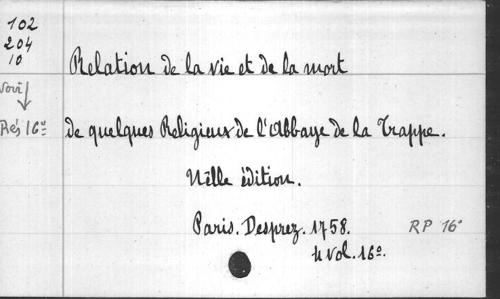 102
204
10
Voir
Rés 16º
Relation de la vie et de la mort
de quelques Religieux de l'Abbaye de la Trappe.
Nelle édition.
Paris. Desprez. 1758.
4 vol. 16º.
RP 16º